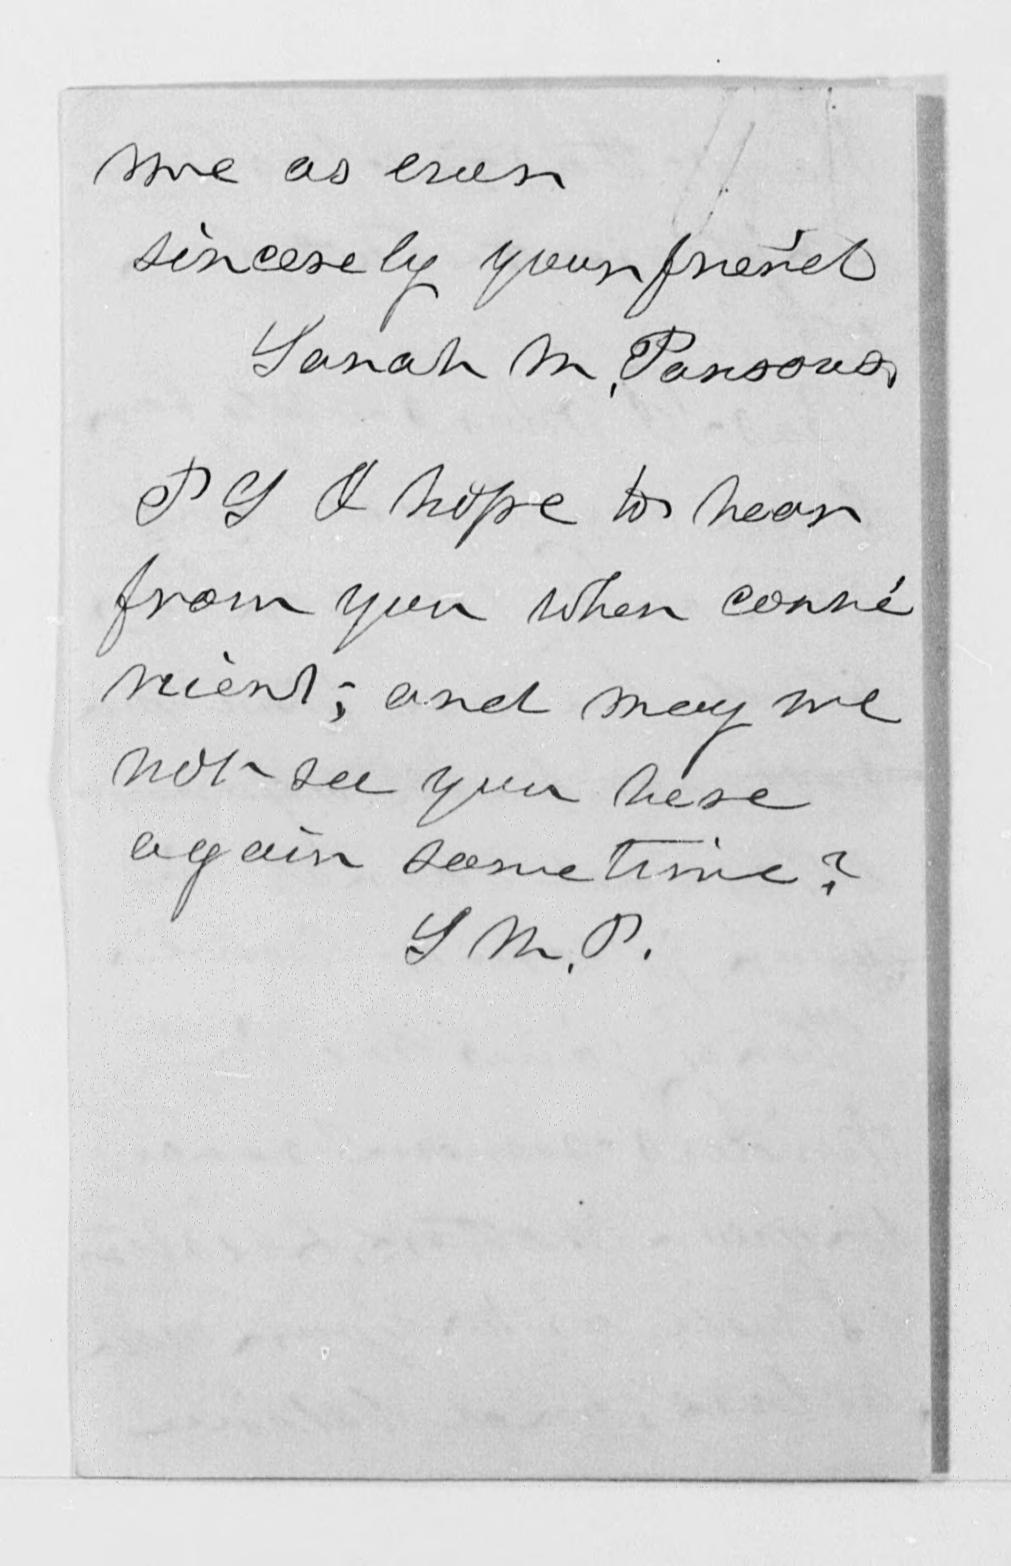 me as ever
sincerely your friend
Sarah M. Parsons.
P S I hope to hear
from you when conve
nient; and may we
not see you here
again sometime?
S M. P.